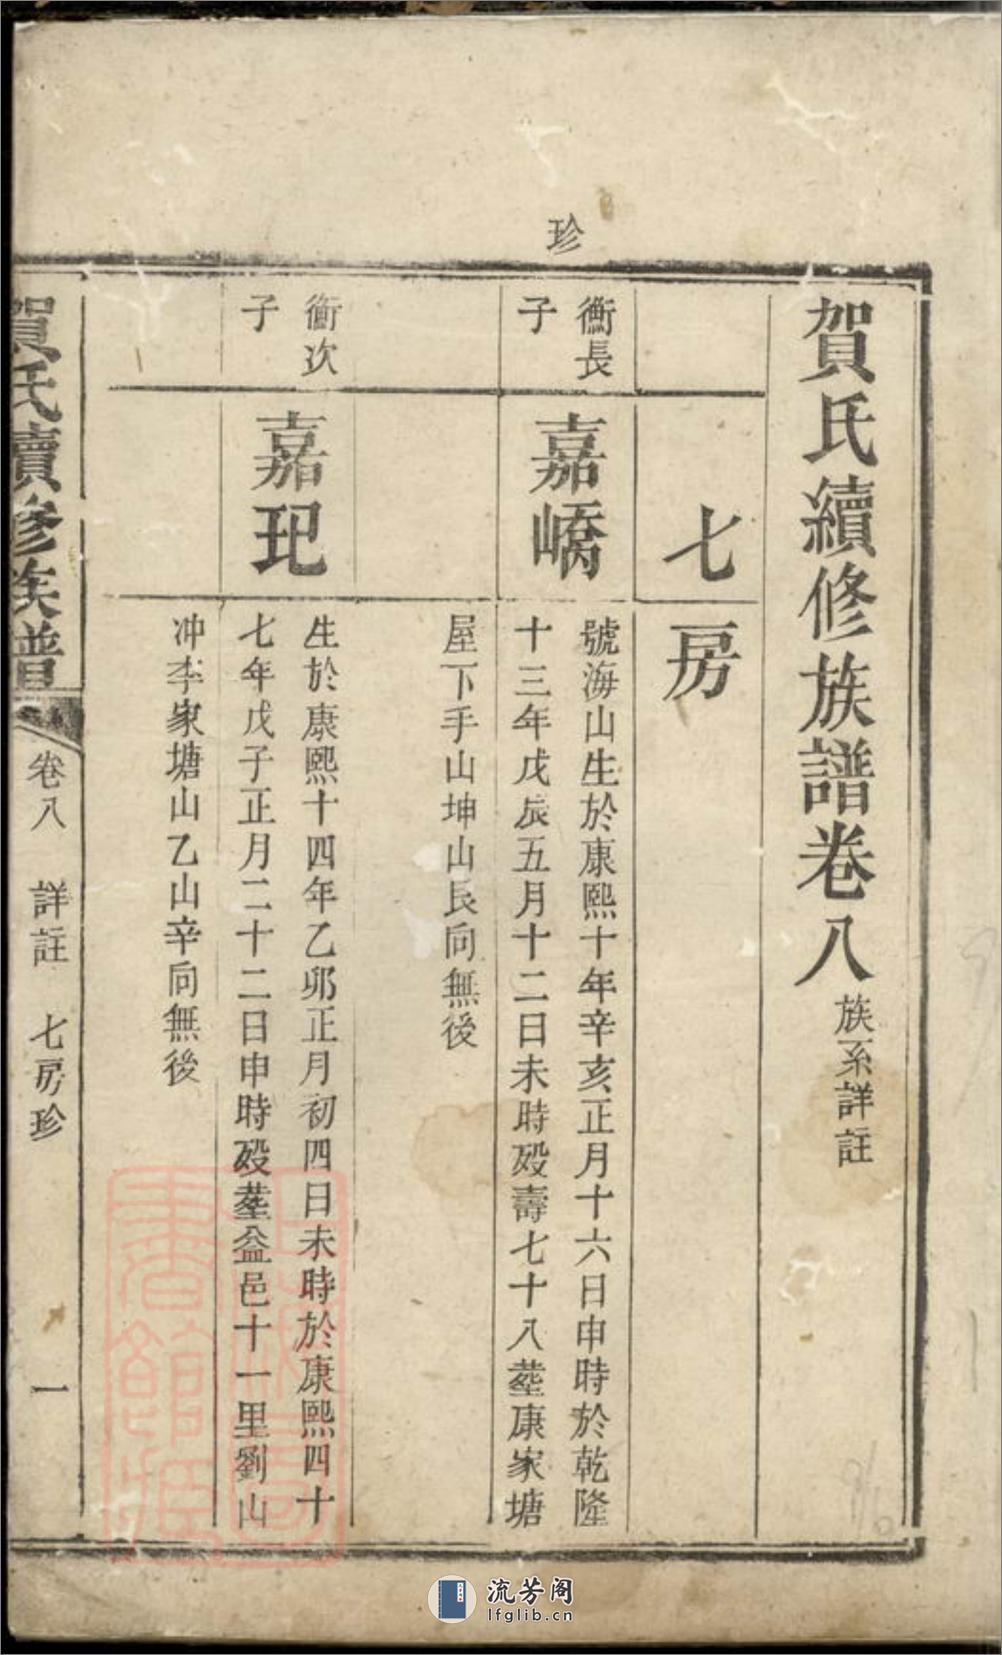 珍
賀氏續修族譜卷八 族系詳註
七房
衡長子
嘉嶠
號海山生於康熙十年辛亥正月十六日申時於乾隆
十三年戊辰五月十二日未時殁壽七十八塟康家塘
屋下手山坤山艮向無後
衡次子
嘉玘
生於康熙十四年乙卯正月初四日未時於康熙四十
七年戊子正月二十二日申時殁塟益邑十一里劉山
冲李家塘山乙山辛向無後
賀氏續修族譜 卷八 詳註 七房珍 一
流芳阁
lfglib.cn